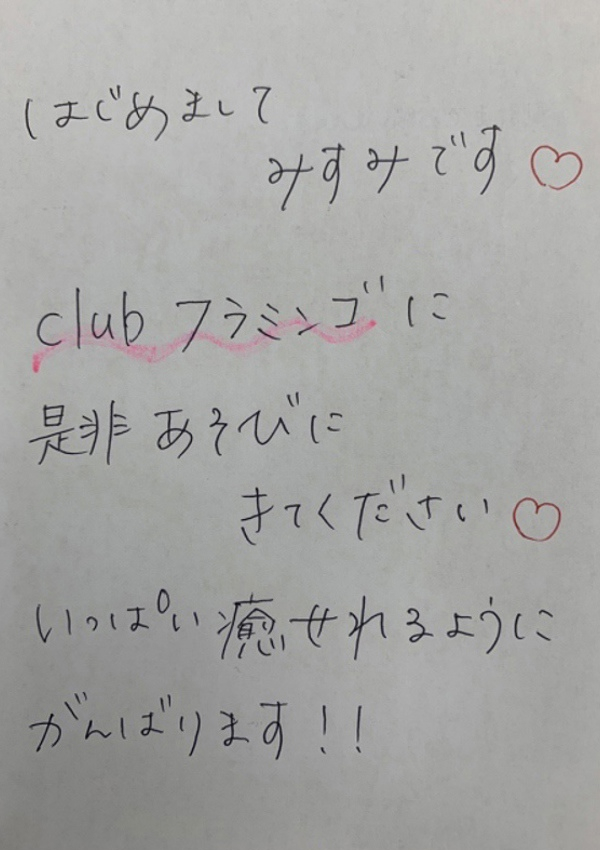 はじめまして
みすみです♡
club フラミンゴに
是非あそびに
きてください♡
いっぱい癒せれるように
がんばります!!